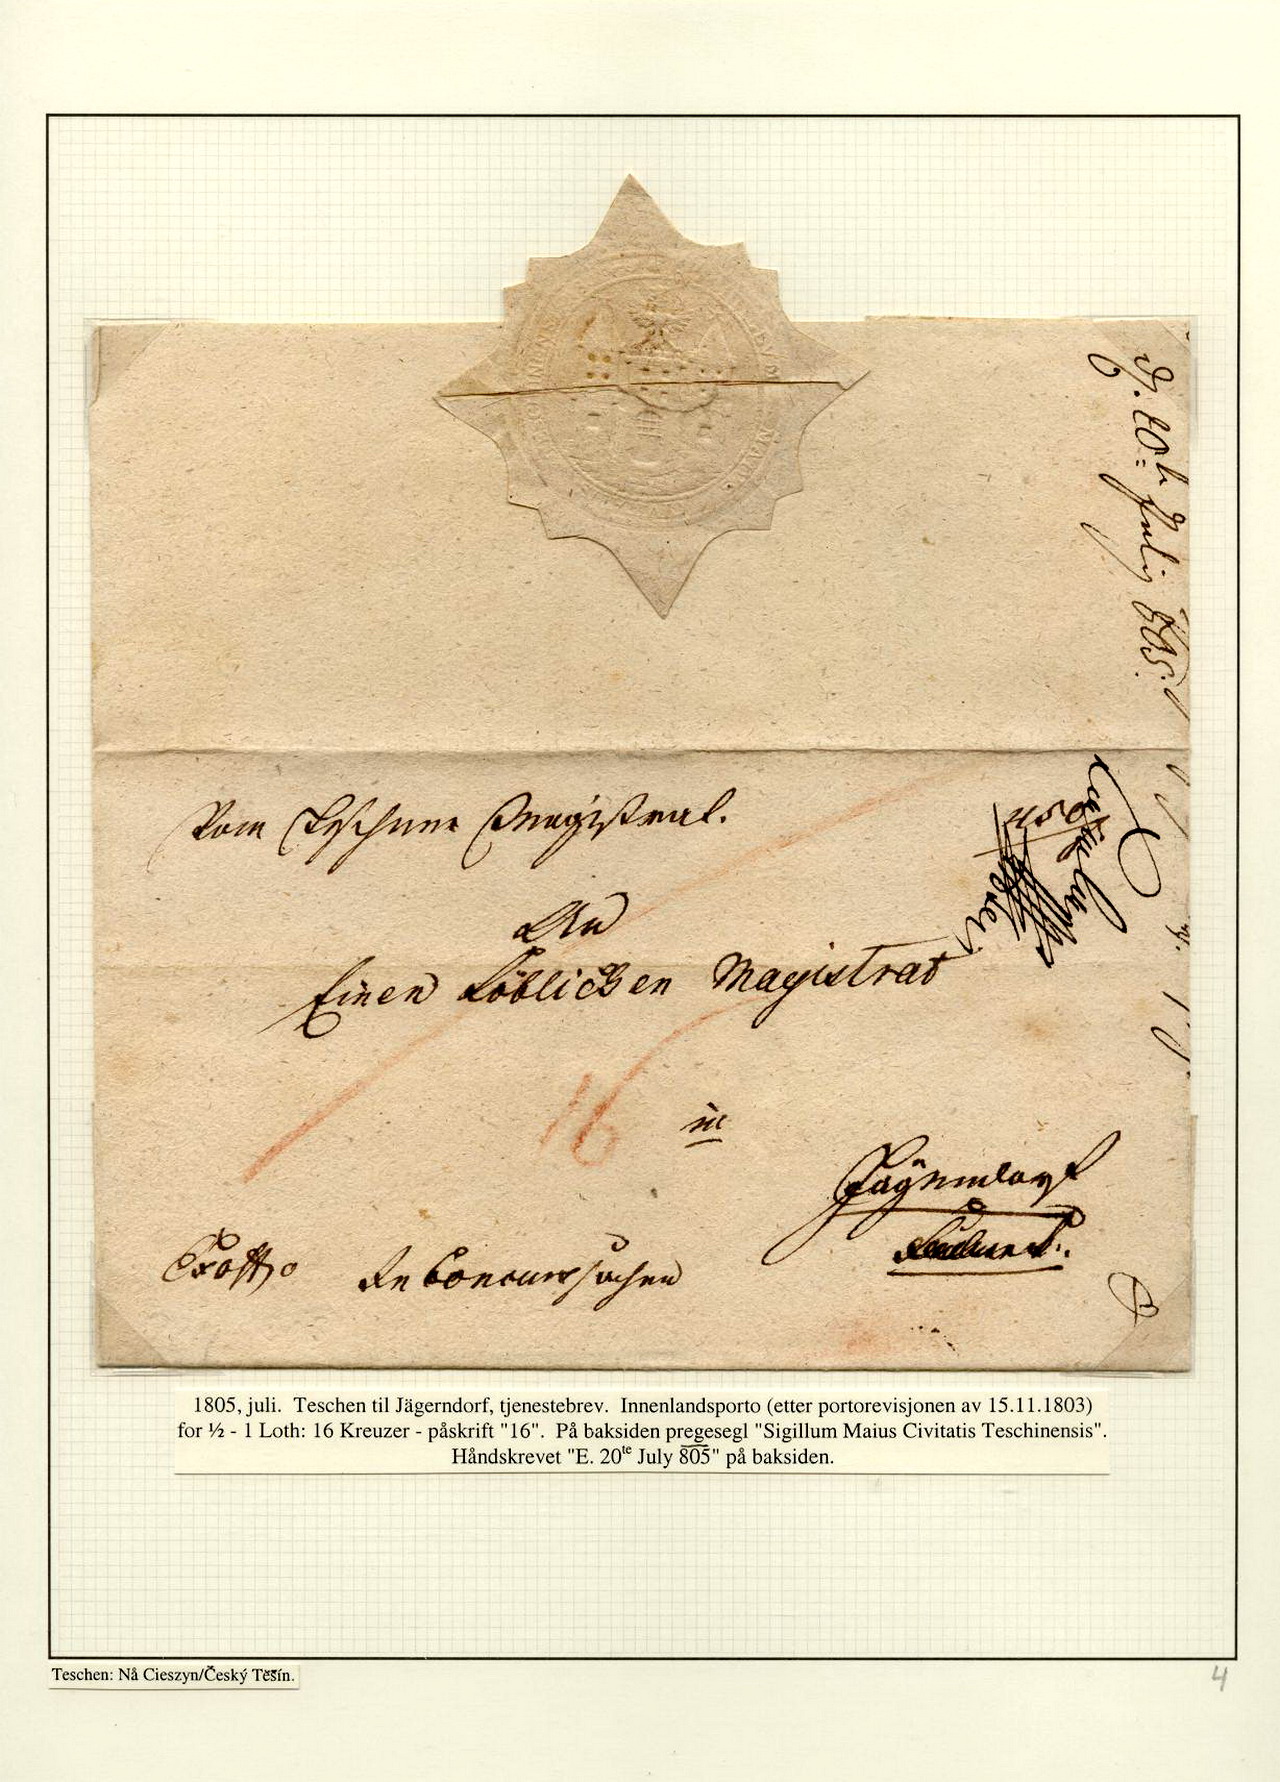 E. 20te July 805.
Vom Teschner Magistrat.
An
Einen Löblichen Magistrat
16
in
Jägerndorf
In Concurssachen
1805, juli. Teschen til Jägerndorf, tjenestebrev. Innenlandsporto (etter portorevisjonen av 15.11.1803)
for ½ - 1 Loth: 16 Kreuzer - påskrift "16". På baksiden pregesegl "Sigillum Maius Civitatis Teschinensis".
Håndskrevet "E. 20te July 805" på baksiden.
Teschen: Nå Cieszyn/Český Těšín.
4